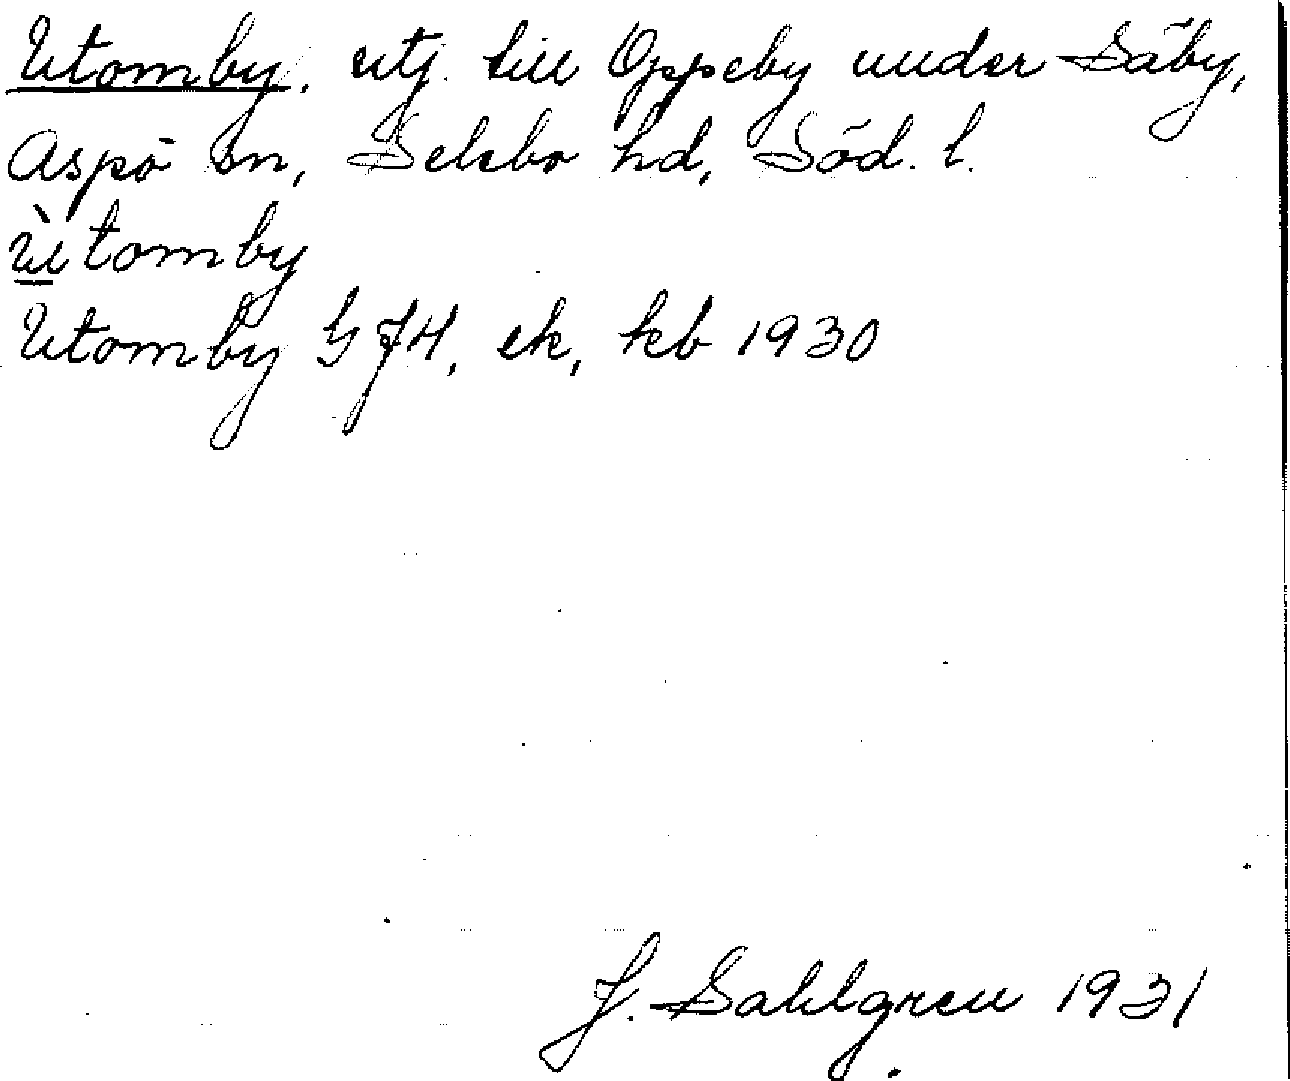 Utomby, utj. till Oppeby under Säby,
Aspö sn, Selebo hd, Söd. l.
Ùtomby
Utomby GJH, ek, kb 1930
J. Sahlgren 1931